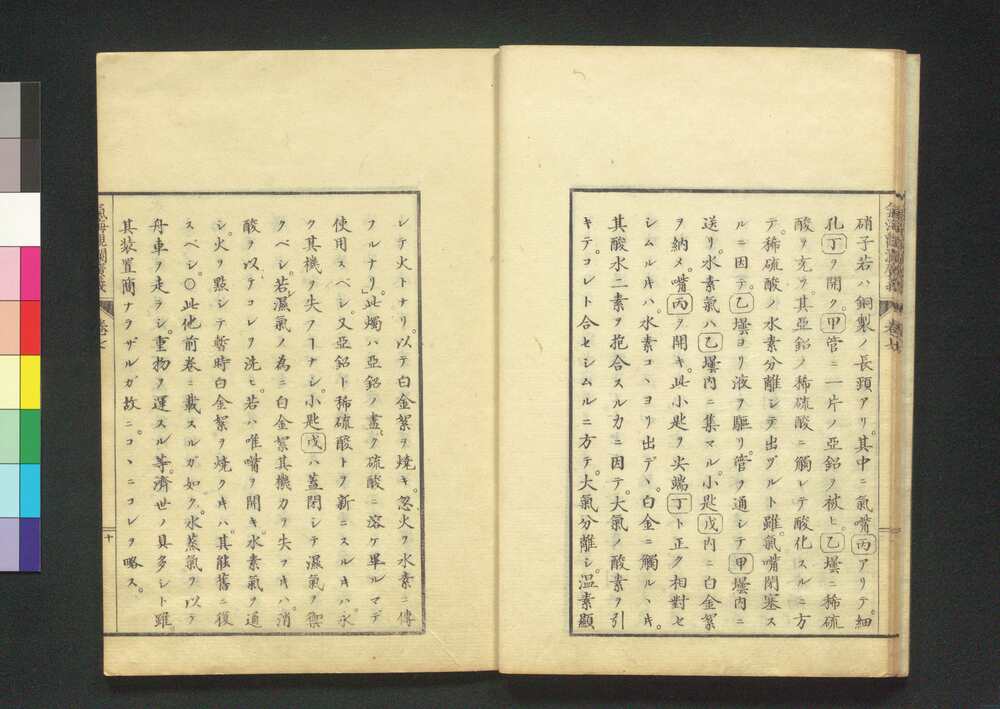 硝子若ハ銅製ノ長頸アリ。其中ニ氣嘴丙アリテ。細
孔丁ヲ開ク。甲管ニ一片ノ亞鉛ヲ被ヒ。乙壜ニ稀硫
酸ヲ充ヲ。其亞鉛ノ稀硫酸ニ觸レテ酸化スルニ方
テ。稀硫酸ノ水素分離シテ出ヅルト雖。氣嘴閉塞ス
ルニ因テ。乙壜ヨリ液ヲ驅リ。管ヲ通シテ甲壜内ニ
送リ。水素氣ハ乙壜内ニ集マル。小匙戊内ニ白金絮
ヲ納メ。嘴丙ヲ開キ。此小匙ヲ尖端丁ト正ク相對セ
シムルキハ。水素コヽヨリ出デヽ。白金ニ觸ルヽキ。
其酸水二素ヲ抱合スルカニ因テ。大氣ノ酸素ヲ引
キテ。コレト合セシムルニ方テ。大氣分離シ。温素顯
氣海觀瀾廣義
卷七
シテ火トナリ。以テ白金絮ヲ燒キ。忽火ヲ水素ニ傳
フルナリ」。此燭ハ亞鉛ノ盡ク硫酸ニ溶ケ畢ルマデ
使用スベシ。又亞鉛ト稀硫酸トヲ新ニスルキハ。永
ク其機ヲ失フヿナシ。小匙戊ハ蓋閉シテ濕氣ヲ禦
クベシ。若濕氣ノ為ニ白金絮其機力ヲ失フキハ。消
酸ヲ以テコレヲ洗ヒ。若ハ唯嘴ヲ開キ。水素氣ヲ通
シ。火ヲ點シテ暫時白金絮ヲ燒クキハ。其能舊ニ復
スベシ。○此他前卷ニ載スルガ如ク。水蒸氣ヲ以テ
舟車ヲ走ラシ。重物ヲ運スル等。濟世ノ具多シト雖。
其裝置簡ナラザルガ故ニ。コヽニコレヲ略ス。
氣海觀瀾廣義
卷七
十